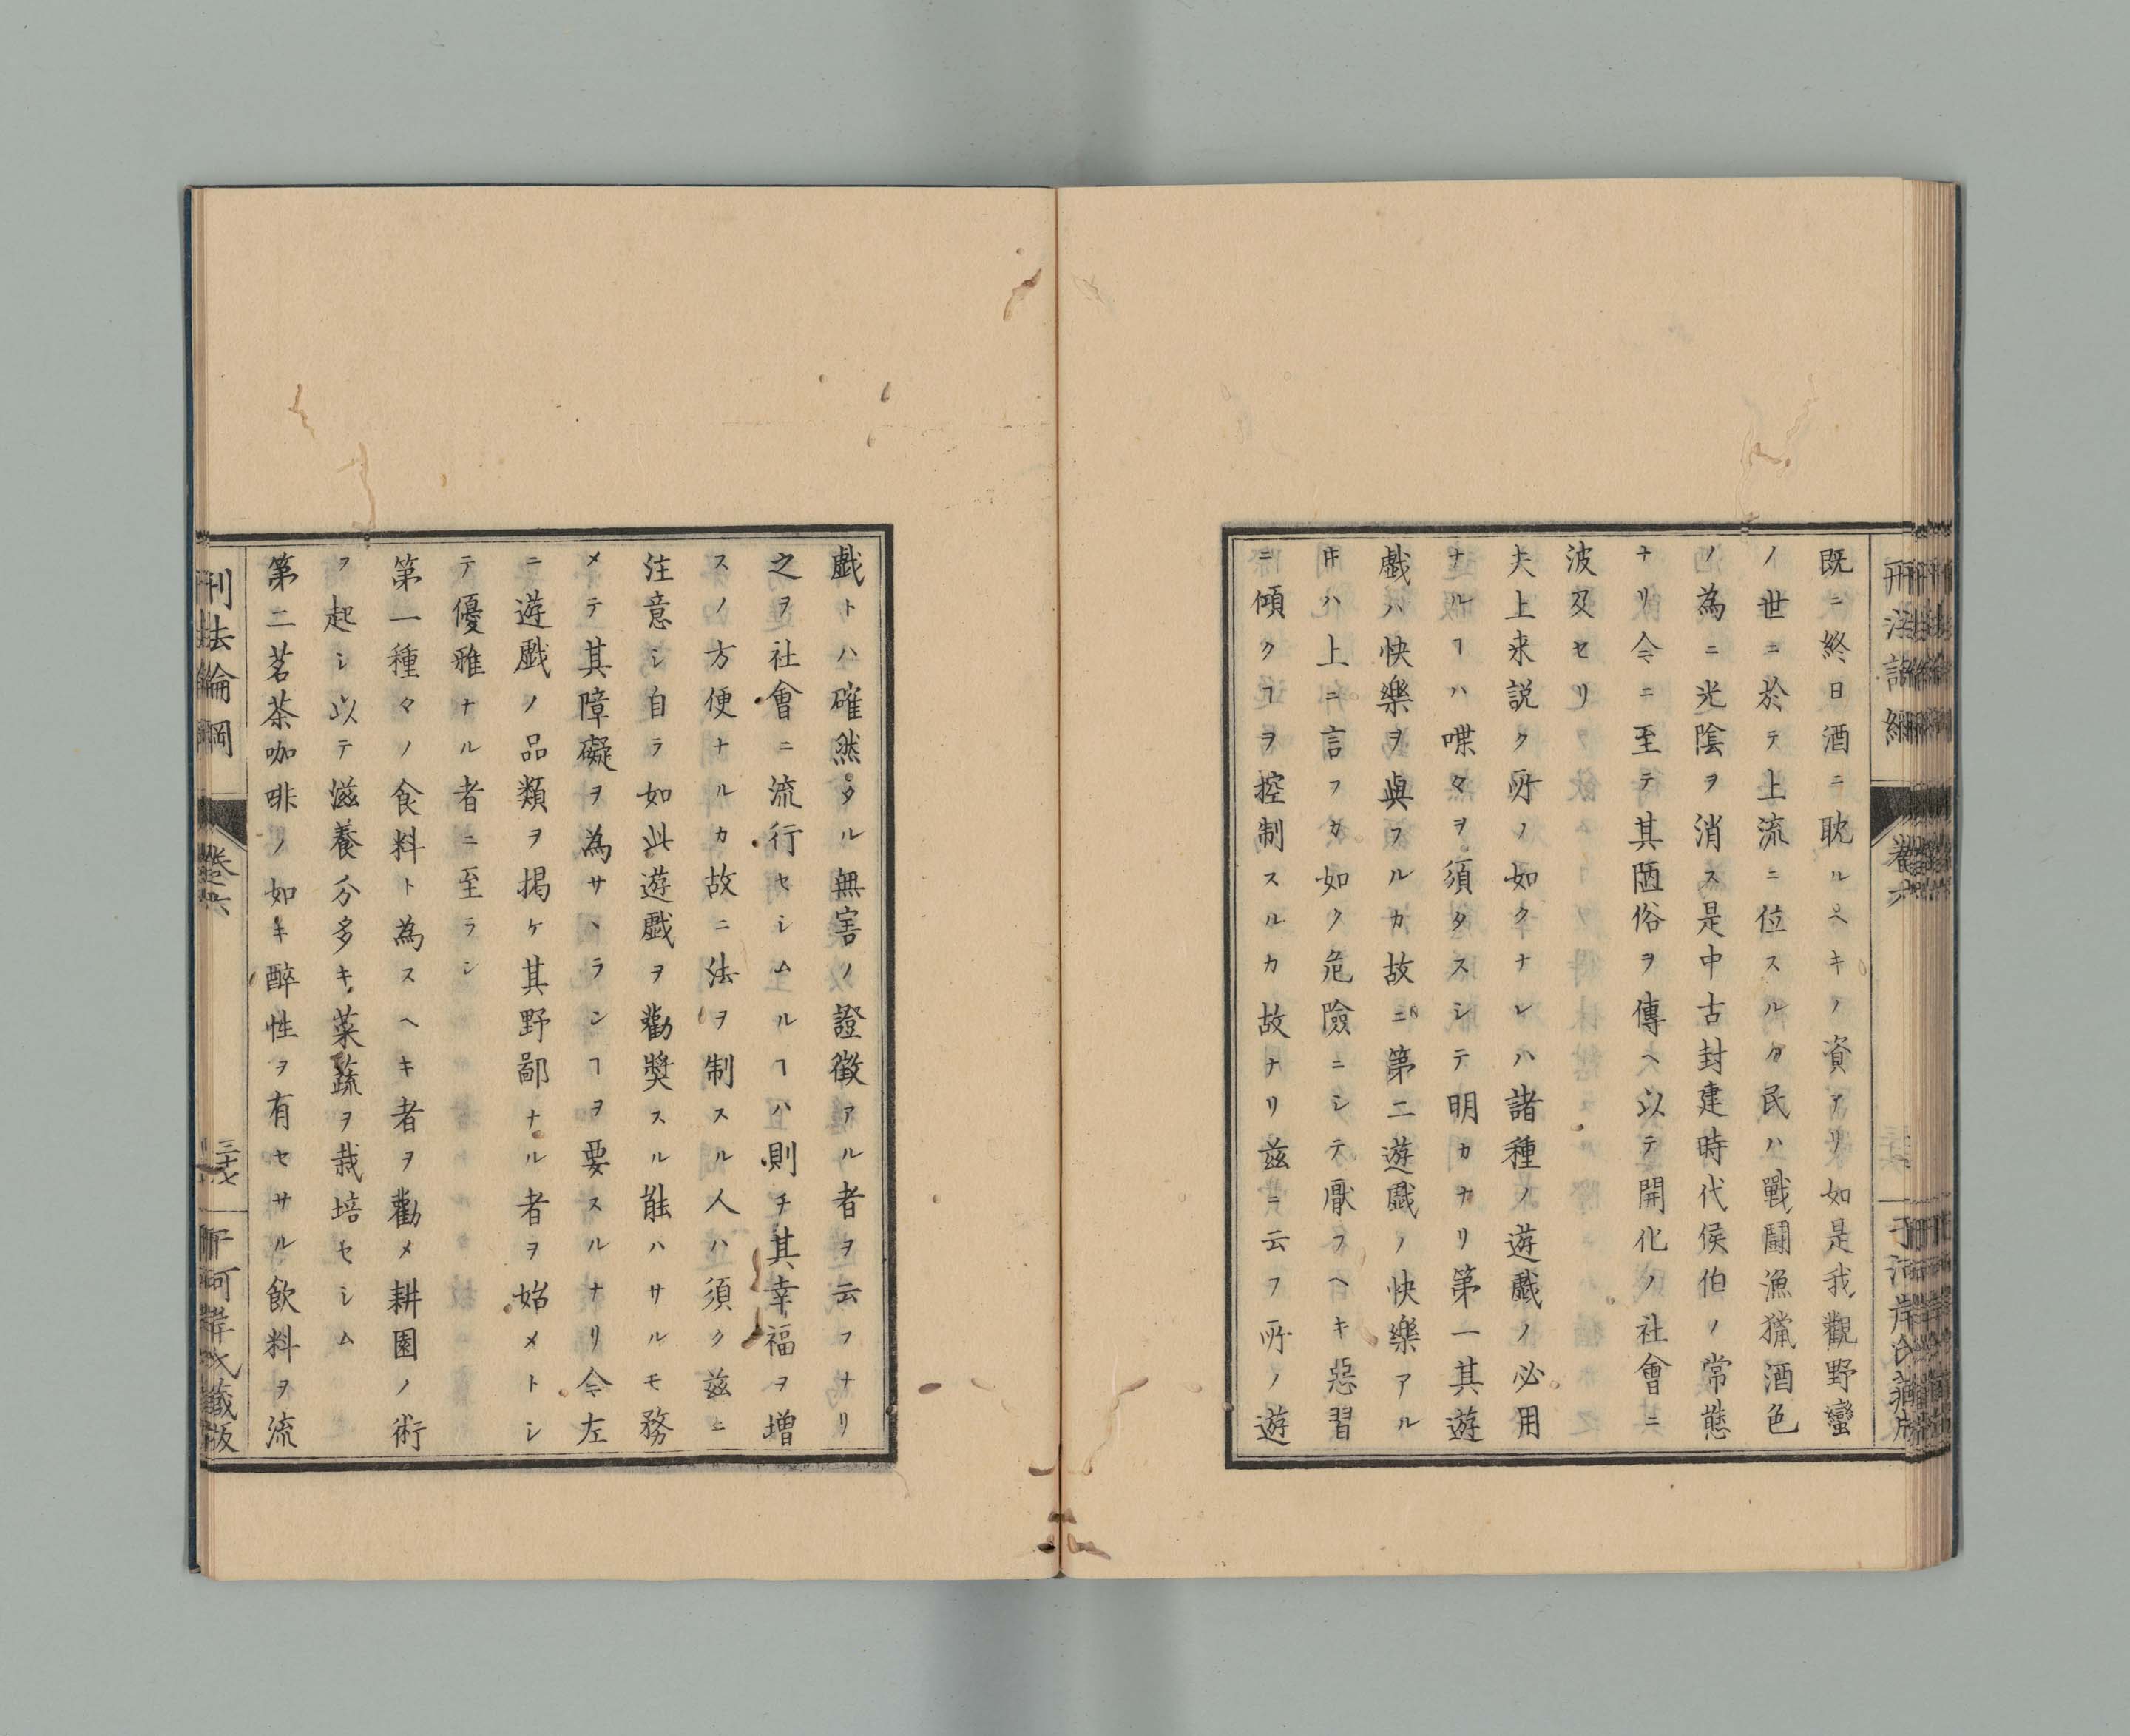 既ニ終日酒ニ耽ルヘキノ資アリ如是我觀野蠻
ノ世ニ於テ上流ニ位スルノ民ハ戰鬪漁獵酒色
ノ為ニ光陰ヲ消ス是中古封建時代侯伯ノ常態
ナリ今ニ至テ其陋俗ヲ傳ヘ以テ開化ノ社會ニ
波及セリ
夫上来説ク所ノ如クナレハ諸種ノ遊戲ノ必用
ナルヿハ喋々ヲ須タスシテ明カナリ第一其遊
戯ハ快樂ヲ與フルカ故ニ第二遊戲ノ快樂アル
ヰハ上ニ言フカ如ク危險ニシテ厭フヘキ惡習
ニ傾クヿヲ控制スルカ故ナリ茲ニ云フ所ノ遊
戯トハ確然タル無害ノ證徴アル者ヲ云フナリ
之ヲ社會ニ流行セシムルヿハ則チ其幸福ヲ增
スノ方便ナルカ故ニ法ヲ制スル人ハ須ク茲ニ
注意シ自ラ如此遊戯ヲ勸奬スル能ハサルモ務
メテ其障礙ヲ為サヽランヿヲ要スルナリ今左
ニ遊戯ノ品類ヲ揭ケ其野鄙ナル者ヲ始メトシ
テ優雅ナル者ニ至ラン
第一種々ノ食料ト為スヘキ者ヲ勸メ耕園ノ術
ヲ起シ以テ滋養分多キ菜蔬ヲ栽培セシム
第二茗茶咖啡ノ如キ醉性ヲ有セサル飲料ヲ流
刑法論綱
卷六
三十七
何禮之氏藏版